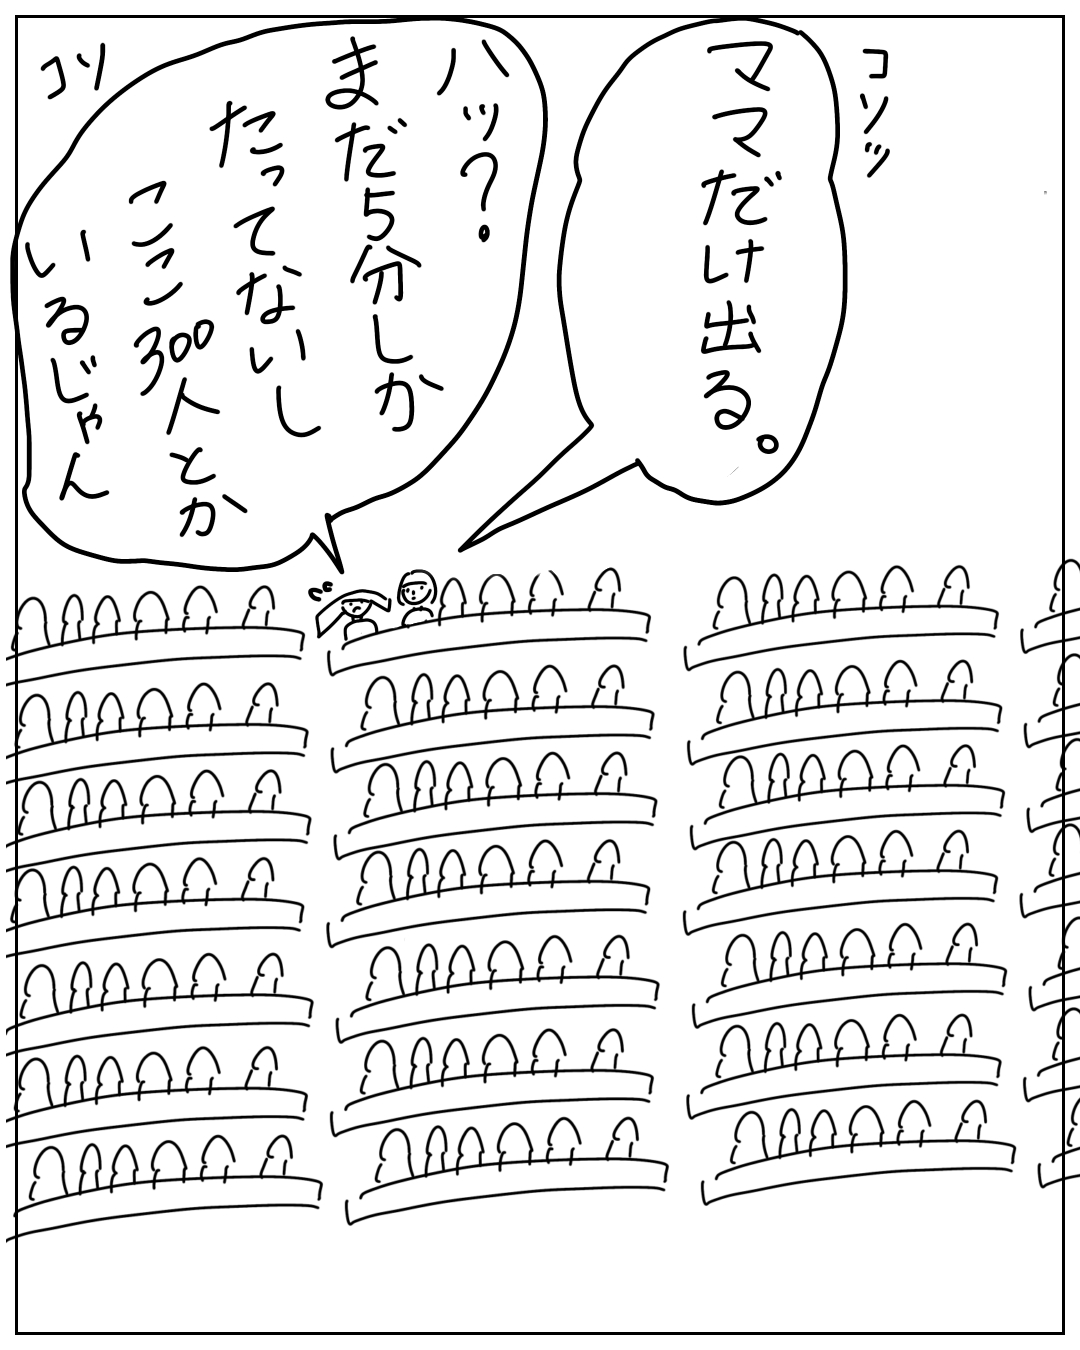 コソッ
ママだけ出る。
ハッ?
まだ5分しか
たってないし
ここ300人とか
いるじゃん
コソ